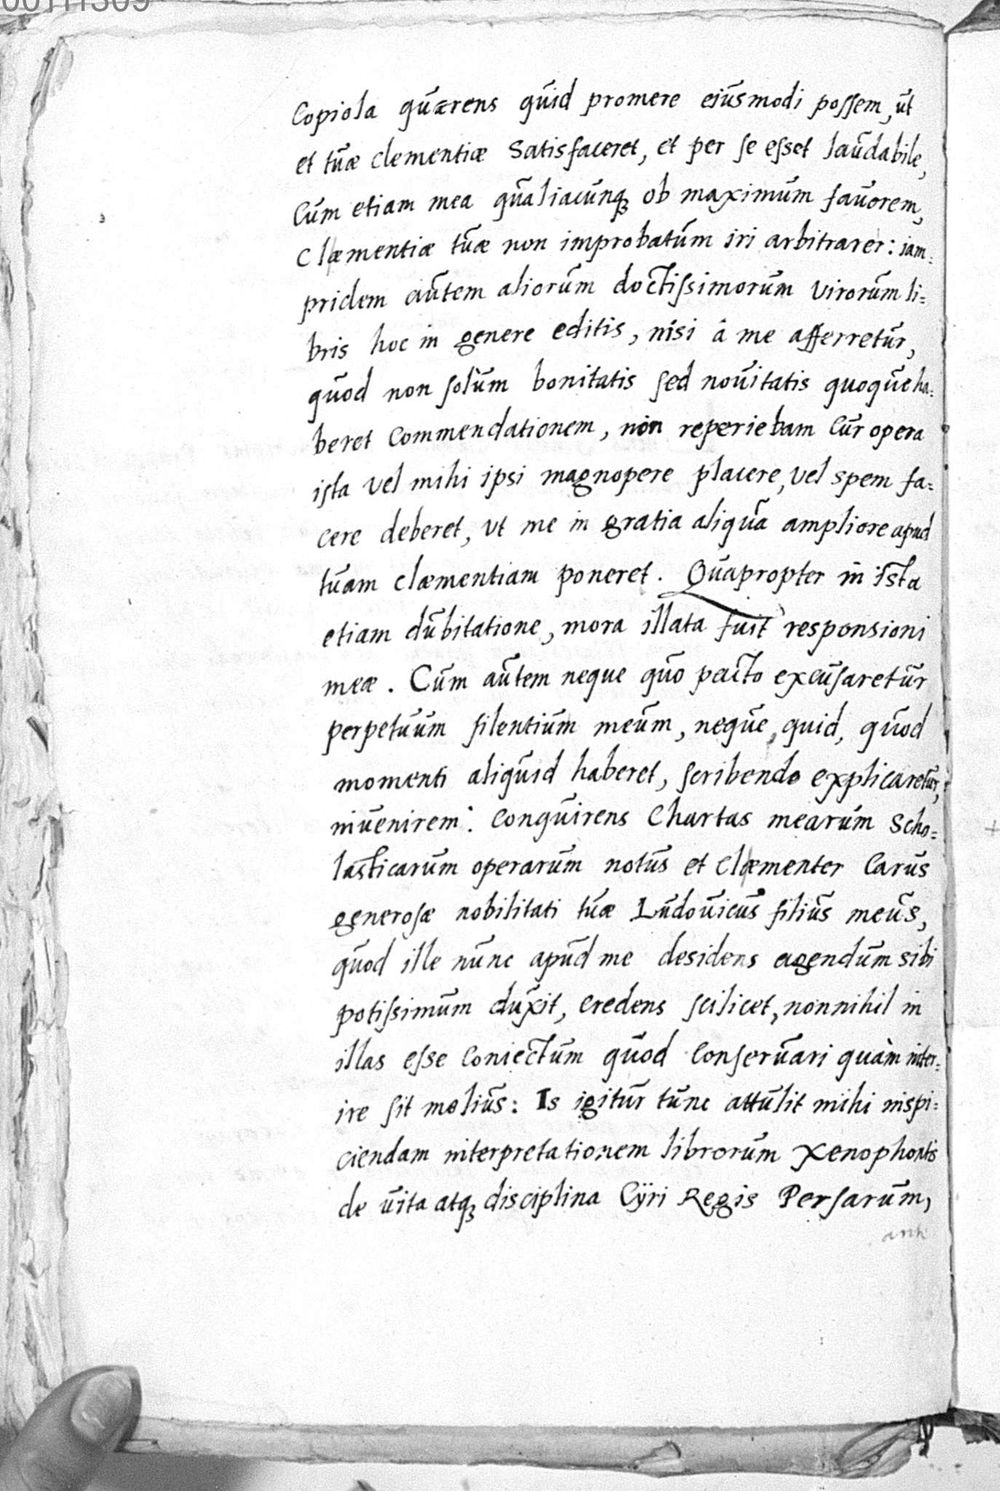 00111309
Copiola quærens quid promere eiusmodi possem, ut
et tuæ clementiæ Satisfaceret, et per se esset laudabile,
Cum etiam mea qualiacunq; ob maximum fauorem,
Clæmentiæ tuæ non improbatum iri arbitrarer: iam-
pridem autem aliorum doctissimorum virorum li=
bris hoc in genere editis, nisi â me afferretur,
quod non solùm bonitatis sed nouitatis quoque ha-
beret Commendationem, non reperiebam Cur opera
ista vel mihi ipsi magnopere placere, vel spem fa=
cere deberet, vt me in gratia aliqua ampliore apud
tuam clæmentiam poneret. Quapropter in ista
etiam dubitatione, mora illata fuit responsioni
meæ. Cum autem neque quo pacto excusaretur
perpetuum silentium meum, neque, quid, quod
momenti aliquid haberet, scribendo explicaretur,
inuenirem: Conquirens Chartas mearum Scho=
lasticarum operarum notus et Clæmenter Carus
generosæ nobilitati tuæ Ludouicus filius meus,
quod ille nunc apud me desidens agendum sibi
potissimum duxit, credens scilicet, nonnihil in
illas esse Coniectum quod Conseruari quàm inter-
ire sit melius: Is igitur tunc attulit mihi inspi=
ciendam interpretationem librorum Xenophontis
de uita atq; disciplina Cÿri Regis Persarum,
ante